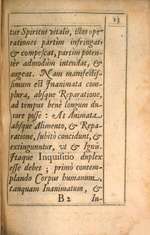 23
tur Spiritus vitalis, illos ope-
rationes partim infringat
& compescat, partim poten-
ter admodùm intendat, &
augeat. Nam manifestis-
simum est Inanimata com-
plura, absque Reparatione
ad tempus benè longum du-
rare posse : At Animata
absque Alimento, & Repa-
ratione, subitò concidunt, &
extinguuntur, ut & Ignis.
Itaque Inquisitio duplex
esse debet ; primò contem-
plando Corpus humanum,
tanquam Inanimatum, &
B 2 In-